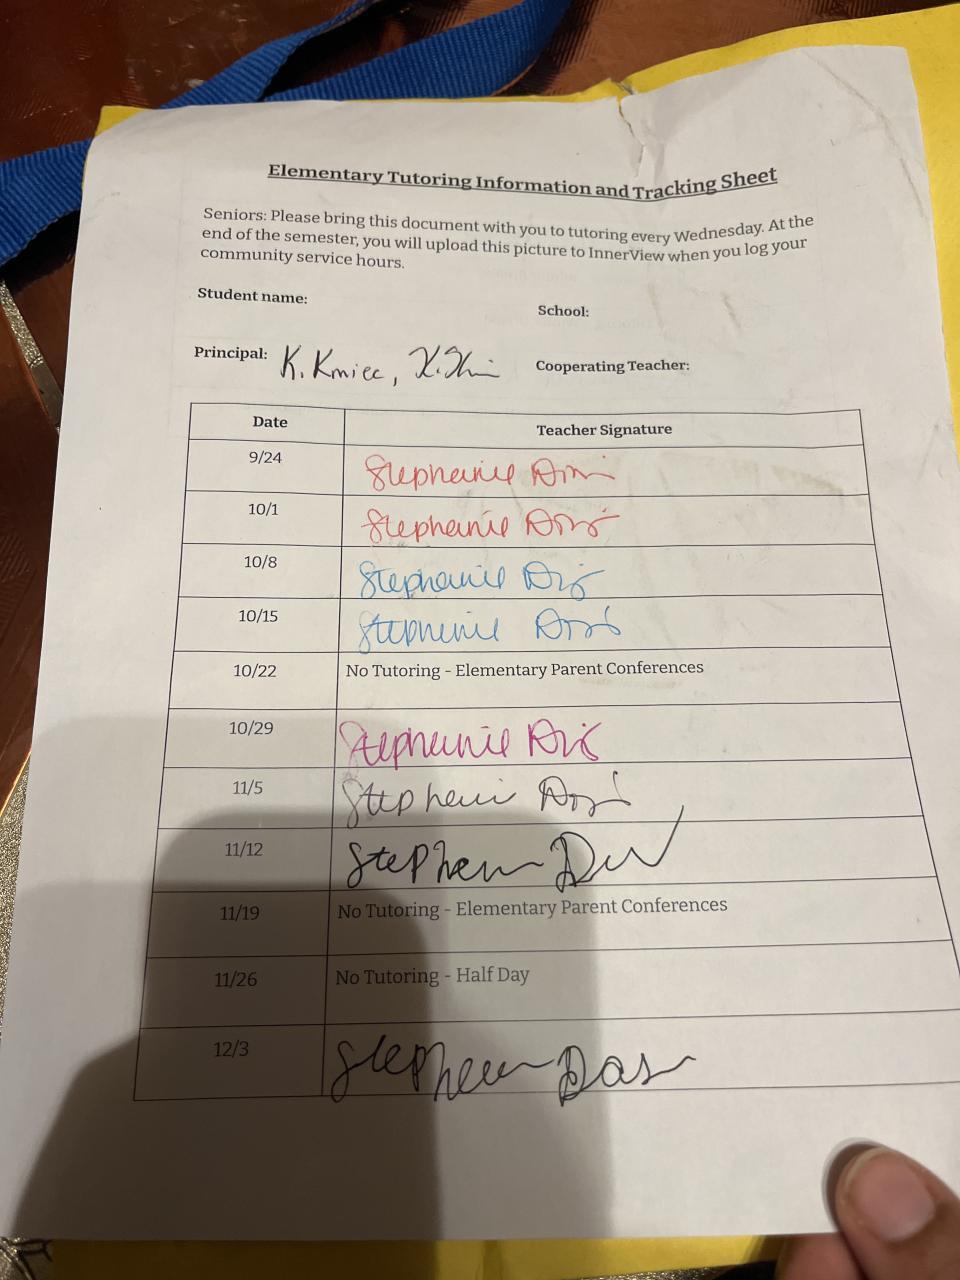 Elementary Tutoring Information and Tracking Sheet
Seniors: Please bring this document with you to tutoring every Wednesday. At the
end of the semester, you will upload this picture to InnerView when you log your
community service hours.
Student name:
School:
Principal: K. Kmiec,
Cooperating Teacher:
Date Teacher Signature
9/24 Stephanie
10/1 Stephanie
10/8 Stephanie
10/15 Stephanie
10/22 No Tutoring - Elementary Parent Conferences
10/29 Stephanie
11/5
11/12
11/19 No Tutoring - Elementary Parent Conferences
11/26 No Tutoring - Half Day
12/3